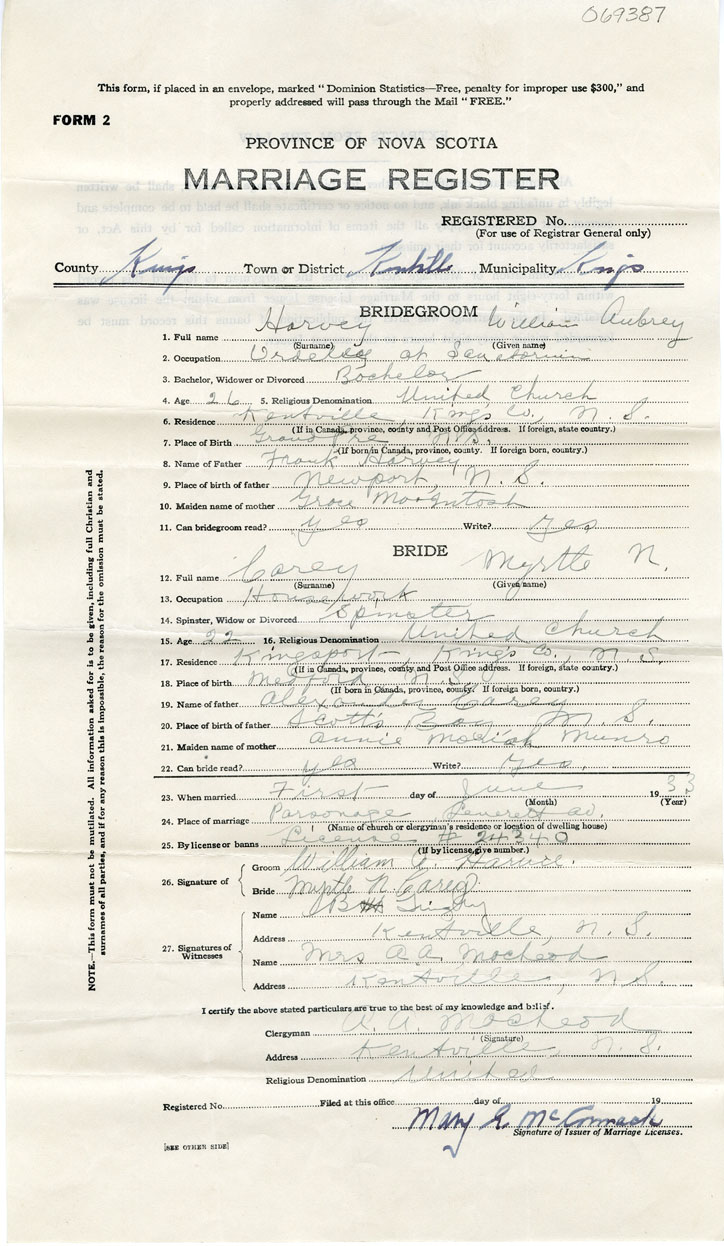 069387
This form, if placed in an envelope, marked "Dominion Statistics—Free, penalty for improper use $300," and
properly addressed will pass through the Mail "FREE."
FORM 2
PROVINCE OF NOVA SCOTIA
MARRIAGE REGISTER
REGISTERED No.
(For use of Registrar General only)
County Kings Town or District Kentville Municipality Kings
BRIDEGROOM
1. Full name Harvey William Aubrey
(Surname) (Given name)
2. Occupation Orderley at Sanatorium
3. Bachelor, Widower or Divorced Bachelor
4. Age 26 5. Religious Denomination United Church
6. Residence Kentville, Kings Co., N. S.
(If in Canada, province, county and Post Office address. If foreign, state country.)
7. Place of Birth Grand Pre N.S.
(If born in Canada, province, county. If foreign born, country.)
8. Name of Father Frank Harvey
9. Place of birth of father Newport, N. S.
10. Maiden name of mother Grace MacIntosh
11. Can bridegroom read? yes Write? Yes
BRIDE
12. Full name Carey Myrtle N.
(Surname) (Given name)
13. Occupation Housework
14. Spinster, Widow or Divorced Spinster
15. Age 22 16. Religious Denomination United Church
17. Residence Kingsport Kings Co., N. S.
(If in Canada, province, county, and Post Office address. If foreign, state country.)
18. Place of birth Medford N.S.
(If born in Canada, province, county. If foreign born, country.)
19. Name of father Alexander Carey
20. Place of birth of father Scott's Bay N. S.
21. Maiden name of mother Annie Munro
22. Can bride read? yes Write? Yes.
23. When married First day of June 1933
(Month) (Year)
24. Place of marriage Parsonage
(Name of church or clergyman's residence or location of dwelling house)
25. By license or banns License # 24240
(If by license, give number.)
26. Signature of
Groom William A. Harvie.
Bride Myrtle N. Carey
27. Signatures of Witnesses
Name
Address Kentville, N. S.
Name Mrs A A. Macleod
Address Kentville, N S.
I certify the above stated particulars are true to the best of my knowledge and belief.
Clergyman A. A. Macleod
(Signature)
Address Kentville, N. S.
Religious Denomination United
Registered No. Filed at this office day of 19
Mary E. McCormack
Signature of Issuer of Marriage Licenses.
[SEE OTHER SIDE]
NOTE.—This form must not be mutilated. All information asked for is to be given, including full Christian and
surnames of all parties, and if for any reason this is impossible, the reason for the omission must be stated.